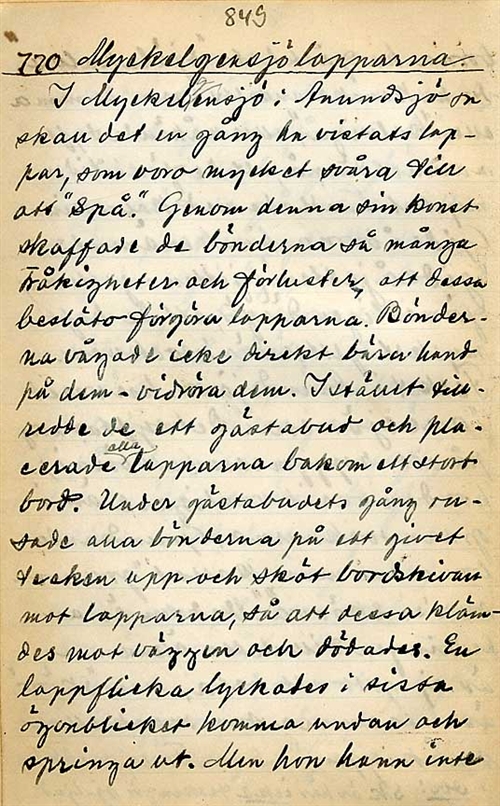 849
770 Myckelgensjölapparna.
I Myckelgensjö i Anundsjö sn
skall det en gång ha vistats lap-
par, som voro mycket svåra till
att "spå." Genom denna sin konst
skaffade de bönderna så många
tråkigheter och förluster, att dessa
beslöto förgöra lapparna. Bönder-
na vågade icke direkt bära hand
på dem - vidröra dem. I stället till-
redde de ett gästabud och pla-
cerade alla lapparna bakom ett stort
bord. Under gästabudets gång ru-
sade alla bönderna på ett givet
tecken upp och sköt bordskivan
mot lapparna, så att dessa kläm-
des mot väggen och dödades. En
lappflicka lyckades i sista
ögonblicket komma undan och
springa ut. Men hon hann inte